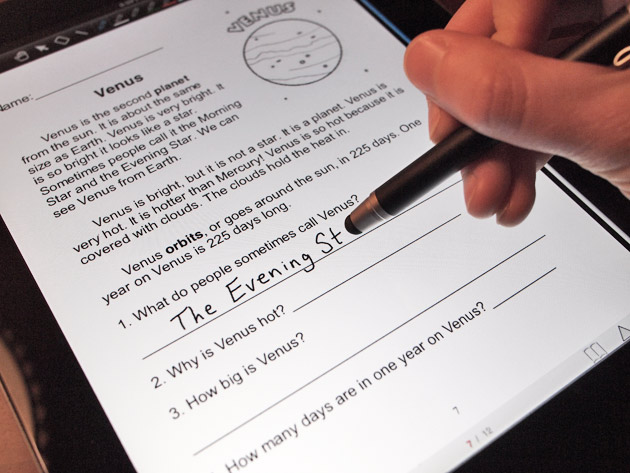 VENUS
Name:
Venus
Venus is the second planet
from the sun. It is about the same
size as Earth. Venus is very bright. It
is so bright it looks like a star.
Sometimes people call it the Morning
Star and the Evening Star. We can
see Venus from Earth.
Venus is bright, but it is not a star. It is a planet. Venus is
very hot. It is hotter than Mercury! Venus is so hot because it is
covered with clouds. The clouds hold the heat in.
Venus orbits, or goes around the sun, in 225 days. One
year on Venus is 225 days long.
1. What do people sometimes call Venus?
The Evening St
2. Why is Venus hot?
3. How big is Venus?
How many days are in one year on Venus?
7
7 / 12